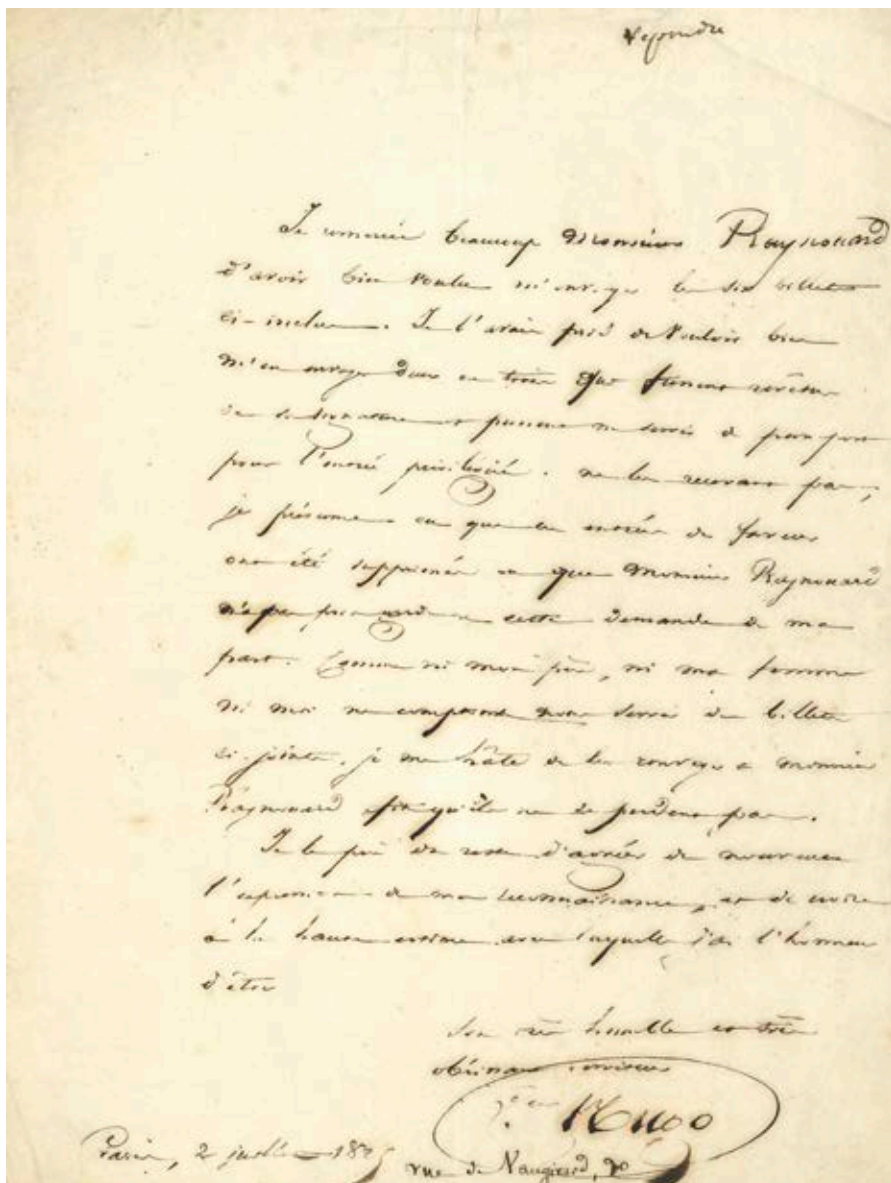 Répondre
Je remercie beaucoup Monsieur Raynouard
d'avoir bien voulu m'envoyer les six billets
ci-inclus. Je l'avais prié de vouloir bien
m'en envoyer deux ou trois qui fussent revêtus
de sa signature et pussent me servir de passeport
pour l'entrée privilégiée. Ne les recevant pas,
je présume ou que ces entrées de faveur
ont été supprimées ou que Monsieur Raynouard
n'a pas cette demande de ma
part. Comme ni mon père, ni ma femme
ni moi ne comptons nous servir des billets
ci-joints, je me hâte de les renvoyer à monsieur
Raynouard afin qu'ils ne se perdent pas.
Je le prie du reste d'agréer de nouveau
l'expression de ma reconnaissance, et de croire
à la haute estime avec laquelle j'ai l'honneur
d'être
Son très humble et très
obéissant serviteur
Victor Hugo
Paris, 2 juillet
rue de Vaugirard, 90